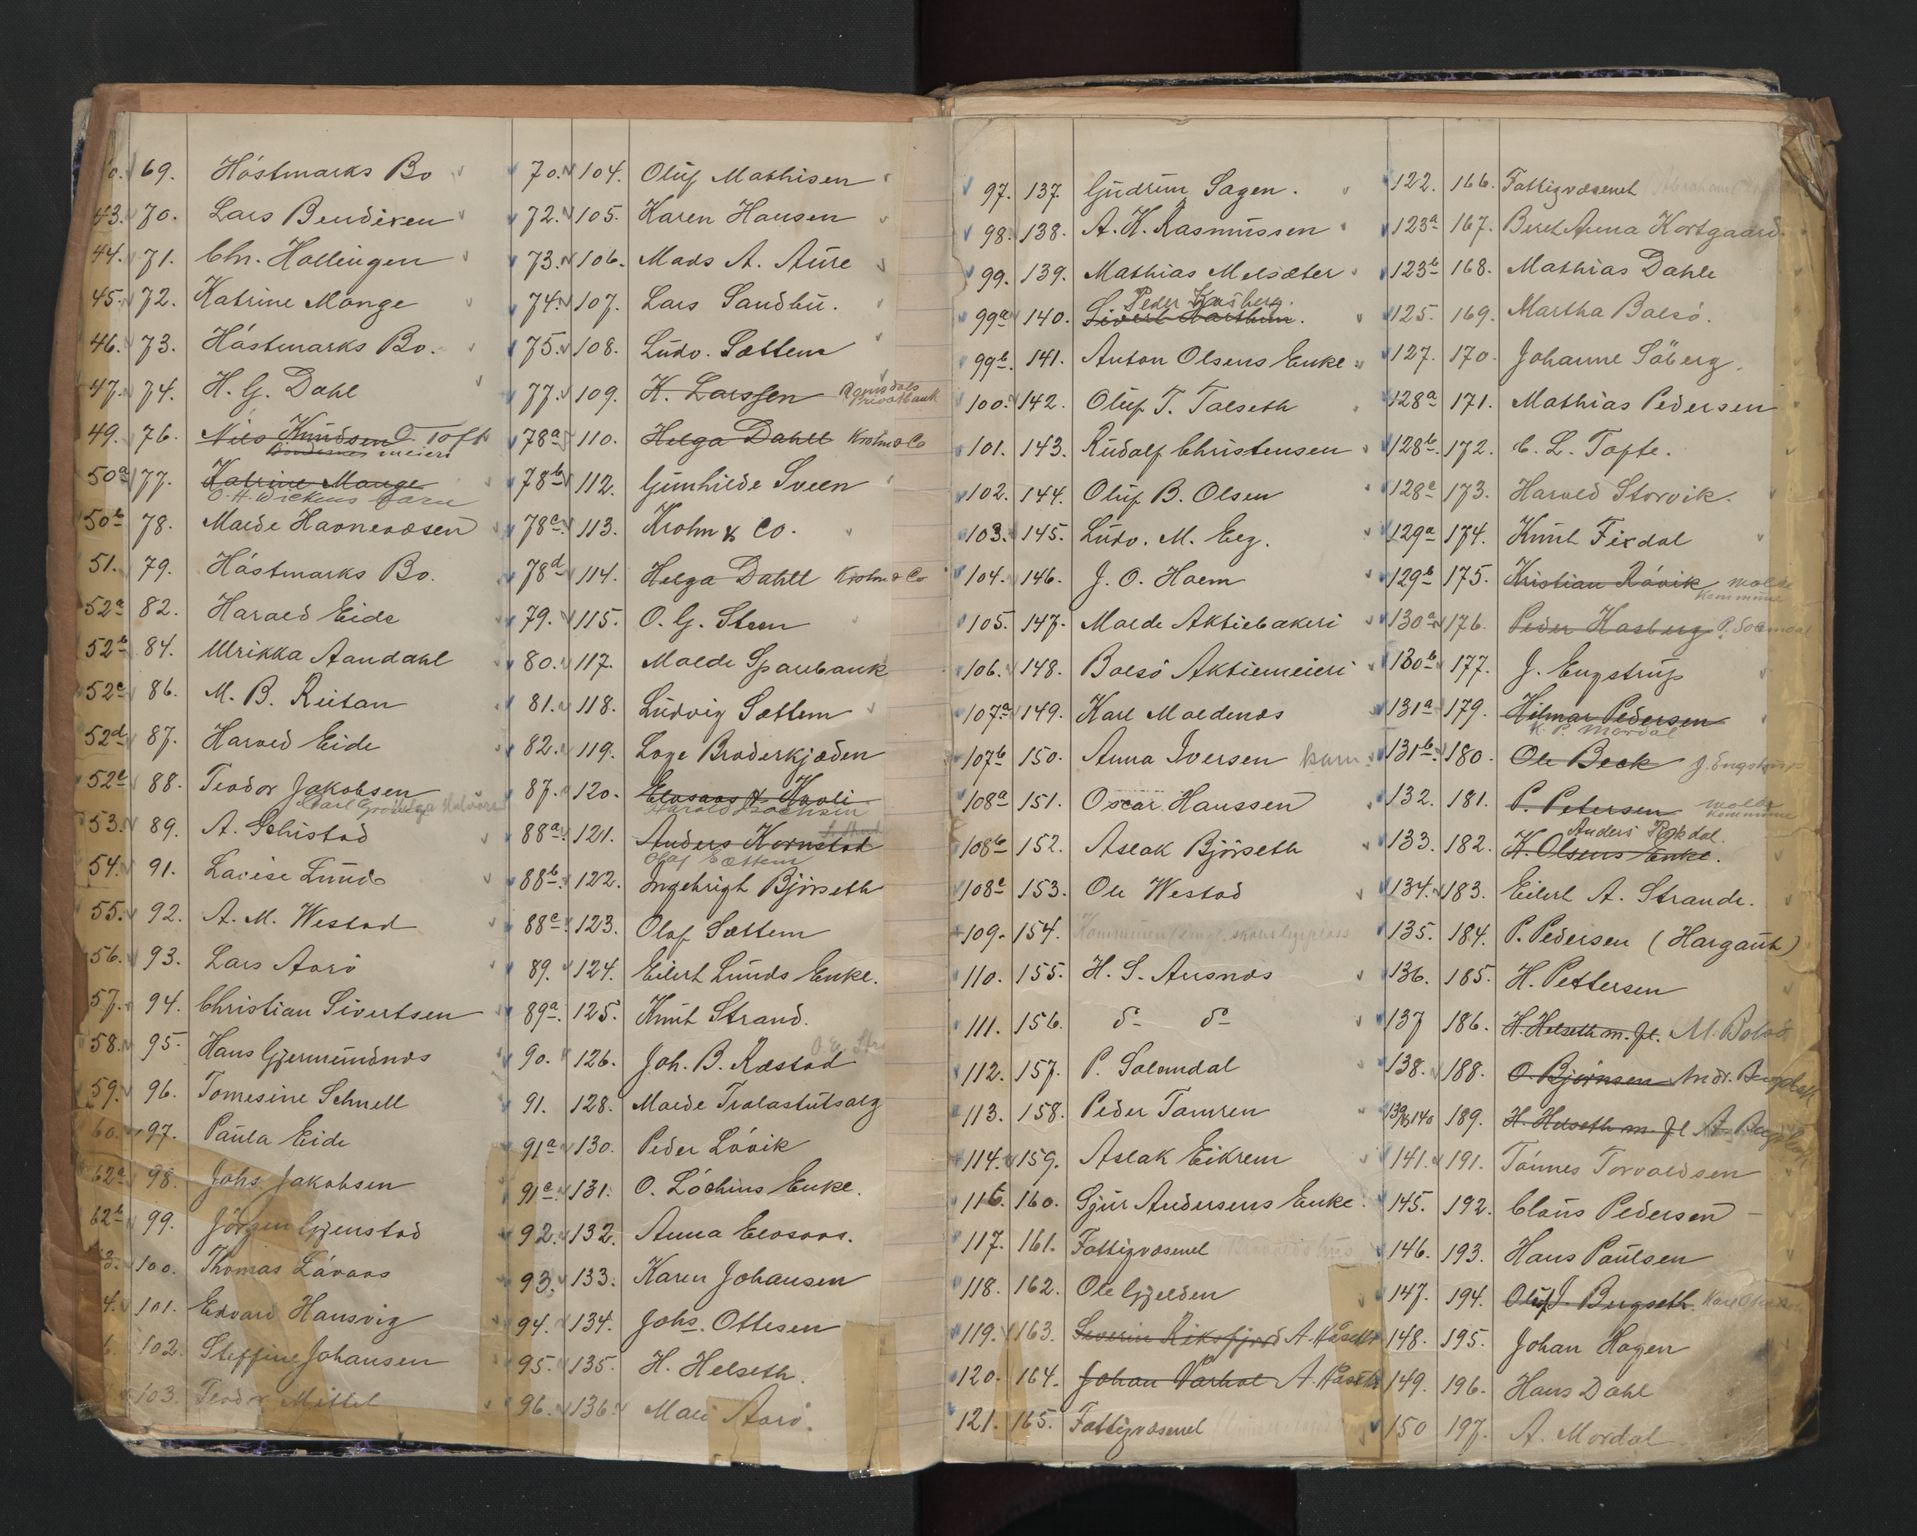 69. Hóstmarks Bo
43. 70. Lars Bendixen
44. 71. Chr. Hollingen
45. 72. Katrine Mange
46. 73. Hóstmarks Bo.
47. 74. H. G. Dahl
49. 76. Nils Knudsen O. Toft
meieri
50a 77. Katrine Mange
O. H. Wickens barn
50b 78. Molde Havnevæsen
51. 79. Hóstmarks Bo.
52a 82. Harald Eide
52b 84. Ulrikka Aandahl
52c 86. M. B. Reitan
52d 87. Harald Eide
52e 88. Teodor Jakobsen
53. 89. A. Schistad
54. 91. Lovise Lund
55. 92. A. M. Westad
56. 93. Lars Aarö
57. 94. Christian Sivertsen
58. 95. Hans Gjermundnæs
59. 96. Tomesine Schnell
60. 97. Paula Eide
62a 98. Johs. Jakobsen
62b 99. Jörgen Gjenstad
3. 100. Thomas Lávaas
4. 101. Edvard Hansvig
6. 102. Steffine Johansen
103. Teodor Mittet
70. 104. Oluf Mathisen
72. 105. Karen Hansen
73. 106. Mads A. Aure
74. 107. Lars Sandbu.
75. 108. Ludv. Sættem
77. 109. K. Larssen Romsdals Privatbank
78a 110. Helga Dahll Krohn & Co
78b 112. Gunhilde Sveen
78c 113. Krohn & Co.
78d 114. Helga Dahll Krohn & Co
79. 115. O. G. Stem
80. 117. Molde Sparebank
81. 118. Ludvig Sættem
82. 119. Loge Broderkjæden
87. 120. Elvsaas & Havli
88a. 121. Anders Kornstad
Olaf Sættem
88b. 122. Ingebrigt Björseth
88c. 123. Olaf Sættem
89. 124. Eilert Lunds Enke.
89a. 125. Knut Strand.
90. 126. Joh. B. Ræstad
91. 128. Molde Trelastutsalg
91a 130. Peder Lóvik
91c 131. O. Lóchins Enke.
92. 132. Anna Elvsaas.
93. 133. Karen Johansen
94. 134. Johs. Ottesen
95. 135. H. Helseth.
96. 136. Mali Aarö.
97. 137. Gudrun Sagen.
98. 138. A. K. Rasmussen
99. 139. Mathias Melsæter
Peder Hasberg.
99a 140. Sivert Aarthun.
99b. 141. Anton Olsens Enke
100. 142. Oluf T. Talseth
101. 143. Rudolf Christensen
102. 144. Oluf B. Olsen
103. 145. Ludv. M. Eeg.
104. 146. J. O. Hoem
105. 147. Molde Aktiebakeri
106. 148. Bolsö Aktiemeieri
107a 149. Karl Moldenæs
107b 150. Anna Iversen barn
108a 151. Oscar Hanssen
108b 152. Aslak Björseth
108c 153. Ole Westad
109. 154. Kommunen
110. 155. H. S. Ausnæs
111. 156. do do
112. 157. P. Solemdal
113. 158. Peder Tamren
114. 159. Aslak Eikrem
116. 160. Gjur Andersens Enke.
117. 161. Fattigvæsenet
118. 162. Ole Gjelden
119. 163. Severin Riksfjord A. Hasel
120. 164. Johan Varhol A. Hasel
121. 165. Fattigvæsenet
122. 166. Fattigvæsenet
123a 167. Beret Anna Kortgaard.
123b 168. Mathias Dahle
125. 169. Martha Bolsö.
127. 170. Johanne Söberg.
128a 171. Mathias Pedersen
128b 172. C. L. Tofte.
128c 173. Harald Storvik.
129a 174. Knut Fixdal
129b 175. Kristian Róvik Molde Kommune
130a 176. Peder Hasberg P. Solemdal
130b 177. J. Engstrup
131a 179. Hilmar Pedersen
K. P. Mordal
131b. 180. Ole Beck J. Engstrup
132. 181. P. Petersen Molde Kommune
Anders
133. 182. K. Olsens Enke.
134. 183. Eilert A. Strande.
135. 184. P. Pedersen (Hargaut)
136. 185. H. Pettersen
137 186. H. Helseth m. fl. M. Bolsö
138. 188. O. Björnsen Andr.
139/140 189. H. Helseth m. fl A.
141. 191. Tónnes Torvaldsen
145. 192. Claus Pedersen
146. 193. Hans Paulsen
147. 194. Oluf J. Bergseth. Karl
148. 195. Johan Hagen
149. 196. Hans Dahl
150 197. A. Mordal